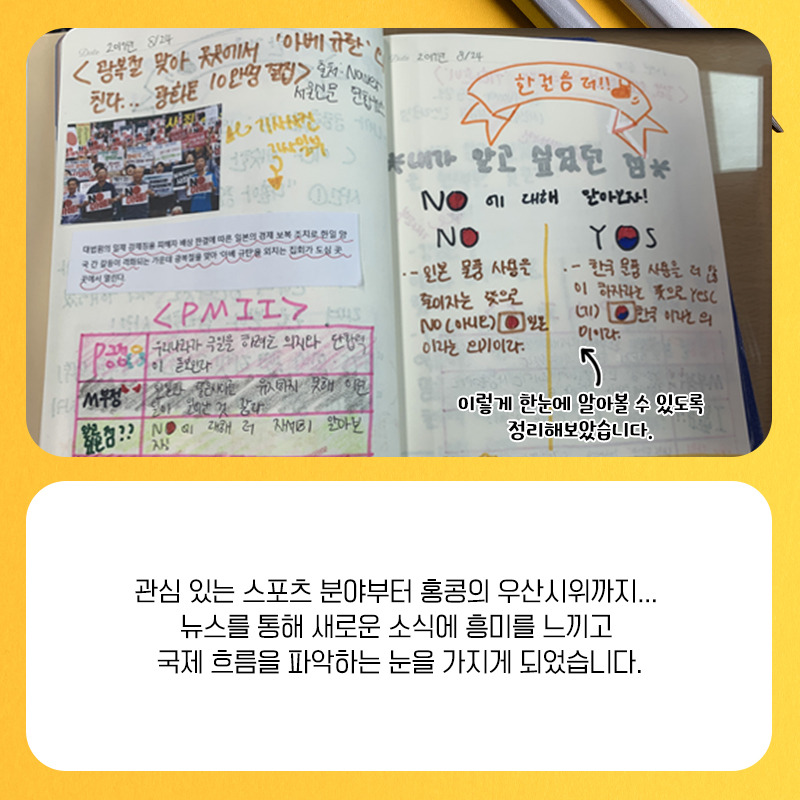 Date 2019년 8/24
<광복절 맞아 곳곳에서 '아베 규탄'
친다... 광화문 10만명 결집>
출처: Naver
서울신문
기사사진
기사일부
대법원의 일제 강제징용 피해자 배상 판결에 따른 일본의 경제 보복 조치로 한일 양
국 간 갈등이 격화되는 가운데 광복절을 맞아 '아베 규탄'을 외치는 집회가 도심 곳
곳에서 열린다.
<PMII>
P긍정
우리나라가 극일을 하려는 의지와 단합력
이 돋보인다
M부정
일본과 우호관계를 유지하지 못해
알고
싶은 점??
NO에 대해 더 자세히 알아보
자!
Date 2019년 8/24
한걸음 더!!
*내가 알고 싶었던 점*
NO에 대해 알아보자!
NO
YOS
- 일본 물품 사용을
줄이자는 뜻으로
NO(아니오) 일본
이라는 의미이다.
- 한국 물품 사용을 더 많
이 하자라는 뜻으로 YES(
네) 한국 이라는 의
미이다.
이렇게 한눈에 알아볼 수 있도록
정리해보았습니다.
관심 있는 스포츠 분야부터 홍콩의 우산시위까지...
뉴스를 통해 새로운 소식에 흥미를 느끼고
국제 흐름을 파악하는 눈을 가지게 되었습니다.